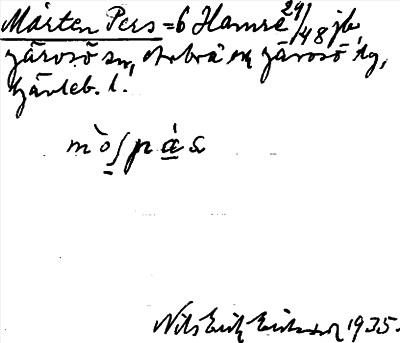 Mårten Pers = 6 Hamre 29/48 jb
Järvsö sn, Arbrå o Järvsö tg,
Gävleb. l.
mò̱ʃpá̱s
Nils Erik Eriksson 1935.